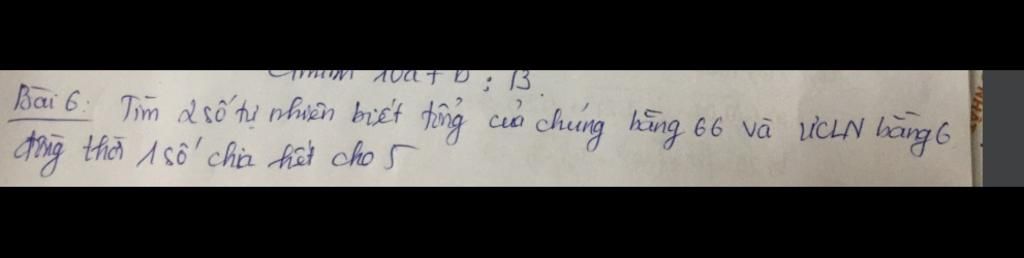 10a + b : 13.
Bài 6: Tìm 2 số tự nhiên biết tổng của chúng bằng 66 và ƯCLN bằng 6
đồng thời 1 số chia hết cho 5